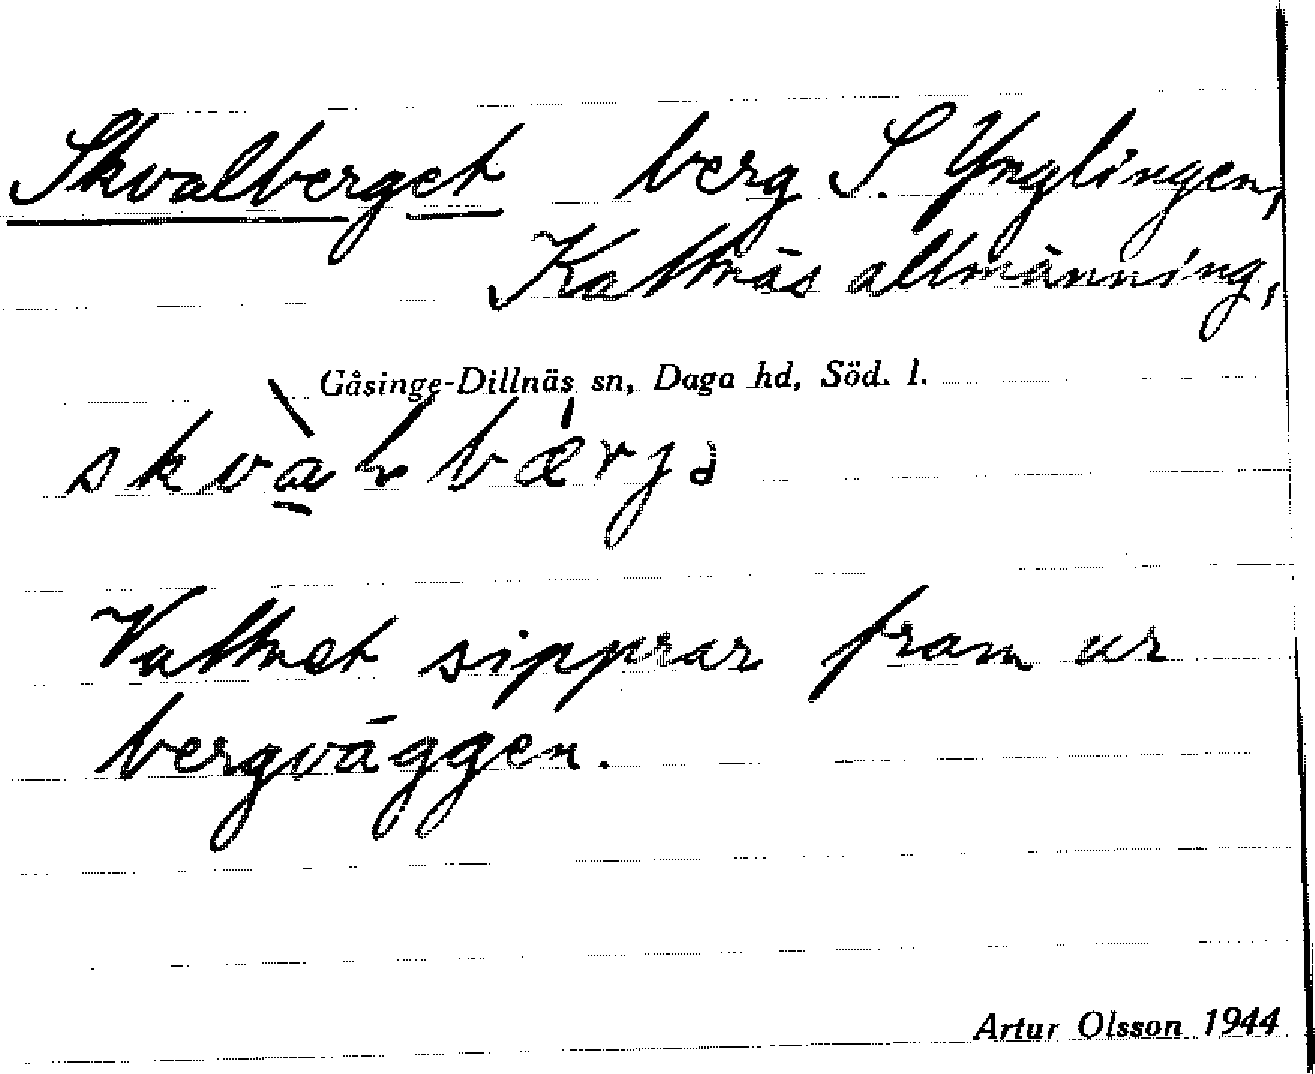 Skvalberget berg S. Ynglingen,
Kattnäs allmänning,
Gåsinge-Dillnäs sn, Daga hd, Söd. l.
Vattnet sipprar fram ur
bergväggen.
Artur Olsson 1944